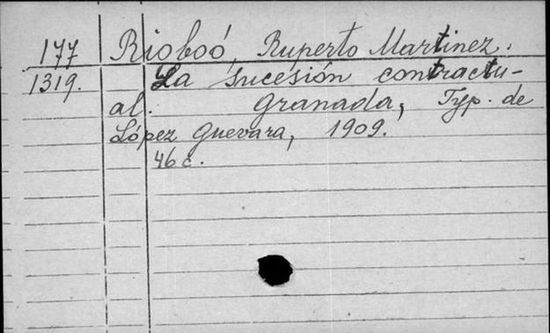 177 Rioboó Ruperto Martinez.
1319. La sucesión contractu-
al. Granada, Typ. de
López Guevara, 1909.
46 c.